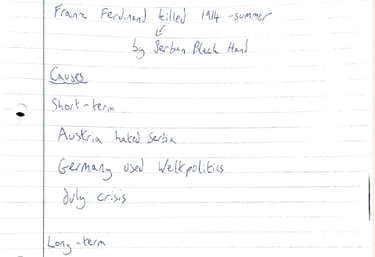 Franz Ferdinand killed 1914 - summer
by Serban Black Hand
Causes
Short-term
Austria hated Serbia
Germany used Weltpolitics
July crisis
Long-term